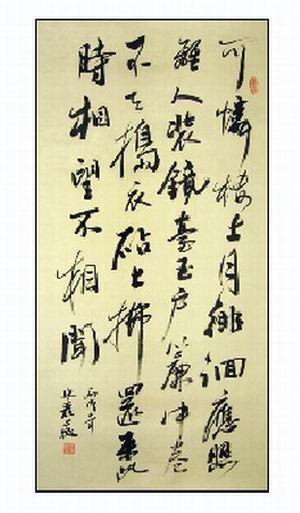 可憐樓上月徘徊應照
離人裝鏡臺玉戶簾中卷
不去搗衣砧上拂還來此
時相望不相聞
丙戌